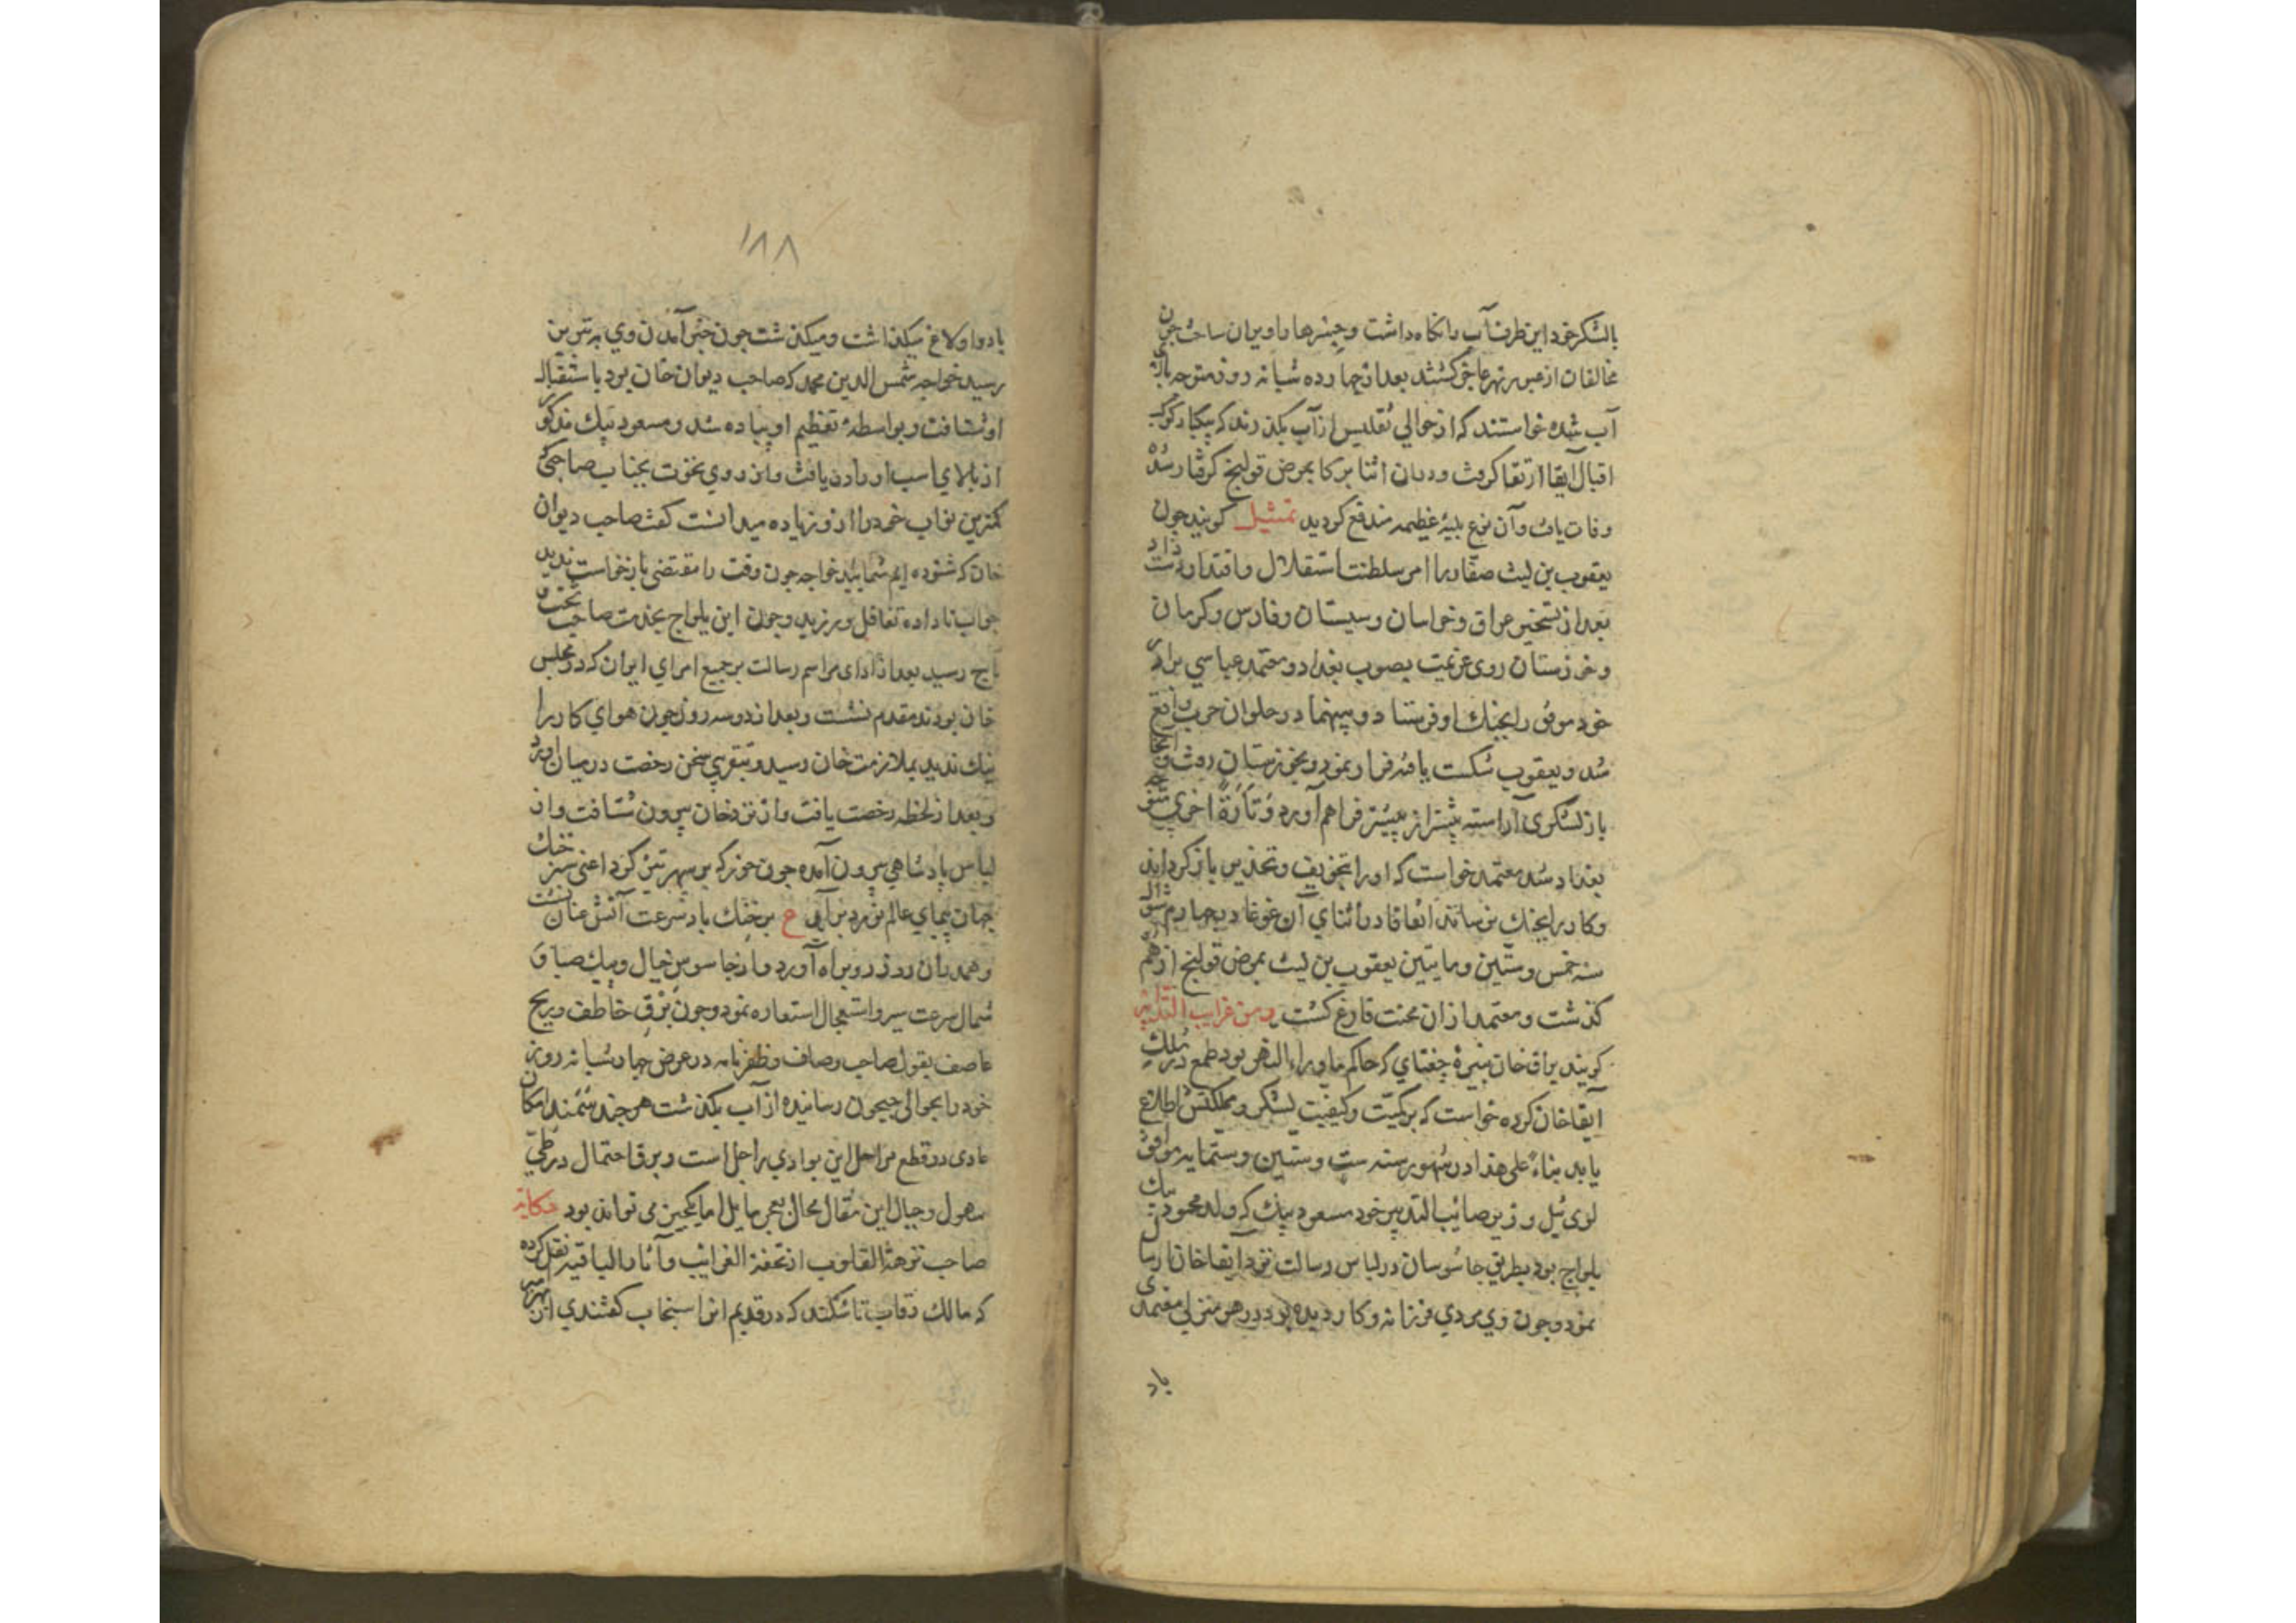 بالشکر خود این طرف آب را نکاه داشت و جسرها را ویران ساخت جون
مخالفان از عبور نهر عاجز کشتند بعد از جهارده شبانه روز متوجه بالای
آب شده خواستند که از حوالی تفلیس از آب بکذرند که بیکبار کوکب
اقبال آبقا ارتفاع کرفت ودران اثنا برکا بمرض قولنج کرفتار شده
وفات یافت وآن نوع بلیهٔ عظیمه مندفع کردید تمثیل کویند جون
یعقوب بن لیث صفار را امر سلطنت استقلال و اقتدار دست داد
بعد از تسخیر عراق و خراسان وسیستان وفارس وکرمان
وخوزستان روی عزیمت بصوب بغداد و معتمد عباسی برادر
خود موفق را بجنك او فرستاد و بینهما در حلوان حرب واقع
شد ویعقوب شکست یافته فرار نمود وبخوزستان رفت وآنجا
باز لشکری آراسته بیشتر از بیشتر فراهم آورد وتارةً اخری متوجه
بغداد شد معتمد خواست که اورا بتخویف و تحذیر باز کرداند
وکار را بجنك نرساند اتفاقا در اثنای آن غوغا در جهاردهم شوال
سنه خمس وستین وماتین یعقوب بن لیث بمرض قولنج از هم
کذشت ومعتمد ازان محنت فارغ کشت ومن غرایب التدابیر
کویند براق خان نبیرهٔ جغتای که حاکم ماوراء النهر بود طمع در ملك
آبقا خان کرده خواست که بر کمیّت و کیفیت لشکر ومملکتش اطلاع
یابد بناءً علی هذا در شهور سنه ست وستین وستمایه موافق
لوی ئیل وزیر صائب التدبیر خود مسعود بیك که ولد محمود بیك
یلواج بود بطریق جاسوسان در لباس رسالت نزد آبقا خان ارسال
نمود وجون وی مردی فرزانه وکار دیده بود در هر منزلی معتمدی
باد
۱۸۸
با دو اولاغ میکذاشت ومیکذشت جون خبر آمدن وی به تبریز
رسید خواجه شمس الدین محمد که صاحب دیوان خان بود باستقبال
او شتافت وبواسطهٔ تعظیم او پیاده شد ومسعود بیك مذکور
از بالای اسب او را دریافت واز روی نخوت بجناب صاحبی که
کمترین نواب خود را ازو زیاده میدانست کفت صاحب دیوان
خان که شنوده ایم شمایید خواجه جون وقت را مقتضی بازخواست ندید
جواب ناداده تغافل ورزید وجون ابن یلواج بخدمت صاحب تخت و
تاج رسید بعد از ادای مراسم رسالت بر جمیع امرای ایران که در مجلس
خان بودند مقدم نشست وبعد از دو سه روز جون هوای کار را
نیك ندید بملازمت خان رسید وبتقریبی سخن رخصت در میان آورد
وبعد از لحظه رخصت یافت واز نزد خان بیرون شتافت واز
لباس پادشاهی بیرون آمده جون خور که بر سپهر تیز کرد اعنی سبز خنك
جهان پیمای عالم نورد برآیی ع بر خنك باد سرعت آتش عنان نشست
وهمدران روز رو براه آورد واز جاسوس خیال وپیك صبا و
شمال سرعت سیر واستعجال استعاره نمود وجون برق خاطف وریح
عاصف بقول صاحب وصاف وظفرنامه در عرض جهار شبانه روز
خود را بحوالی جیحون رسانیده از آب بکذشت هر جند سمند امکان
عادی در قطع مراحل این بوادی راجل است وبرق احتمال در طی
سهول وجبال این مقال محال
صاحب نزهة القلوب از تحفة الغرایب وآثار الباقیه نقل کرده
که مالك رقاب تاشکند که در قدیم انرا اسبنجاب کفتندی